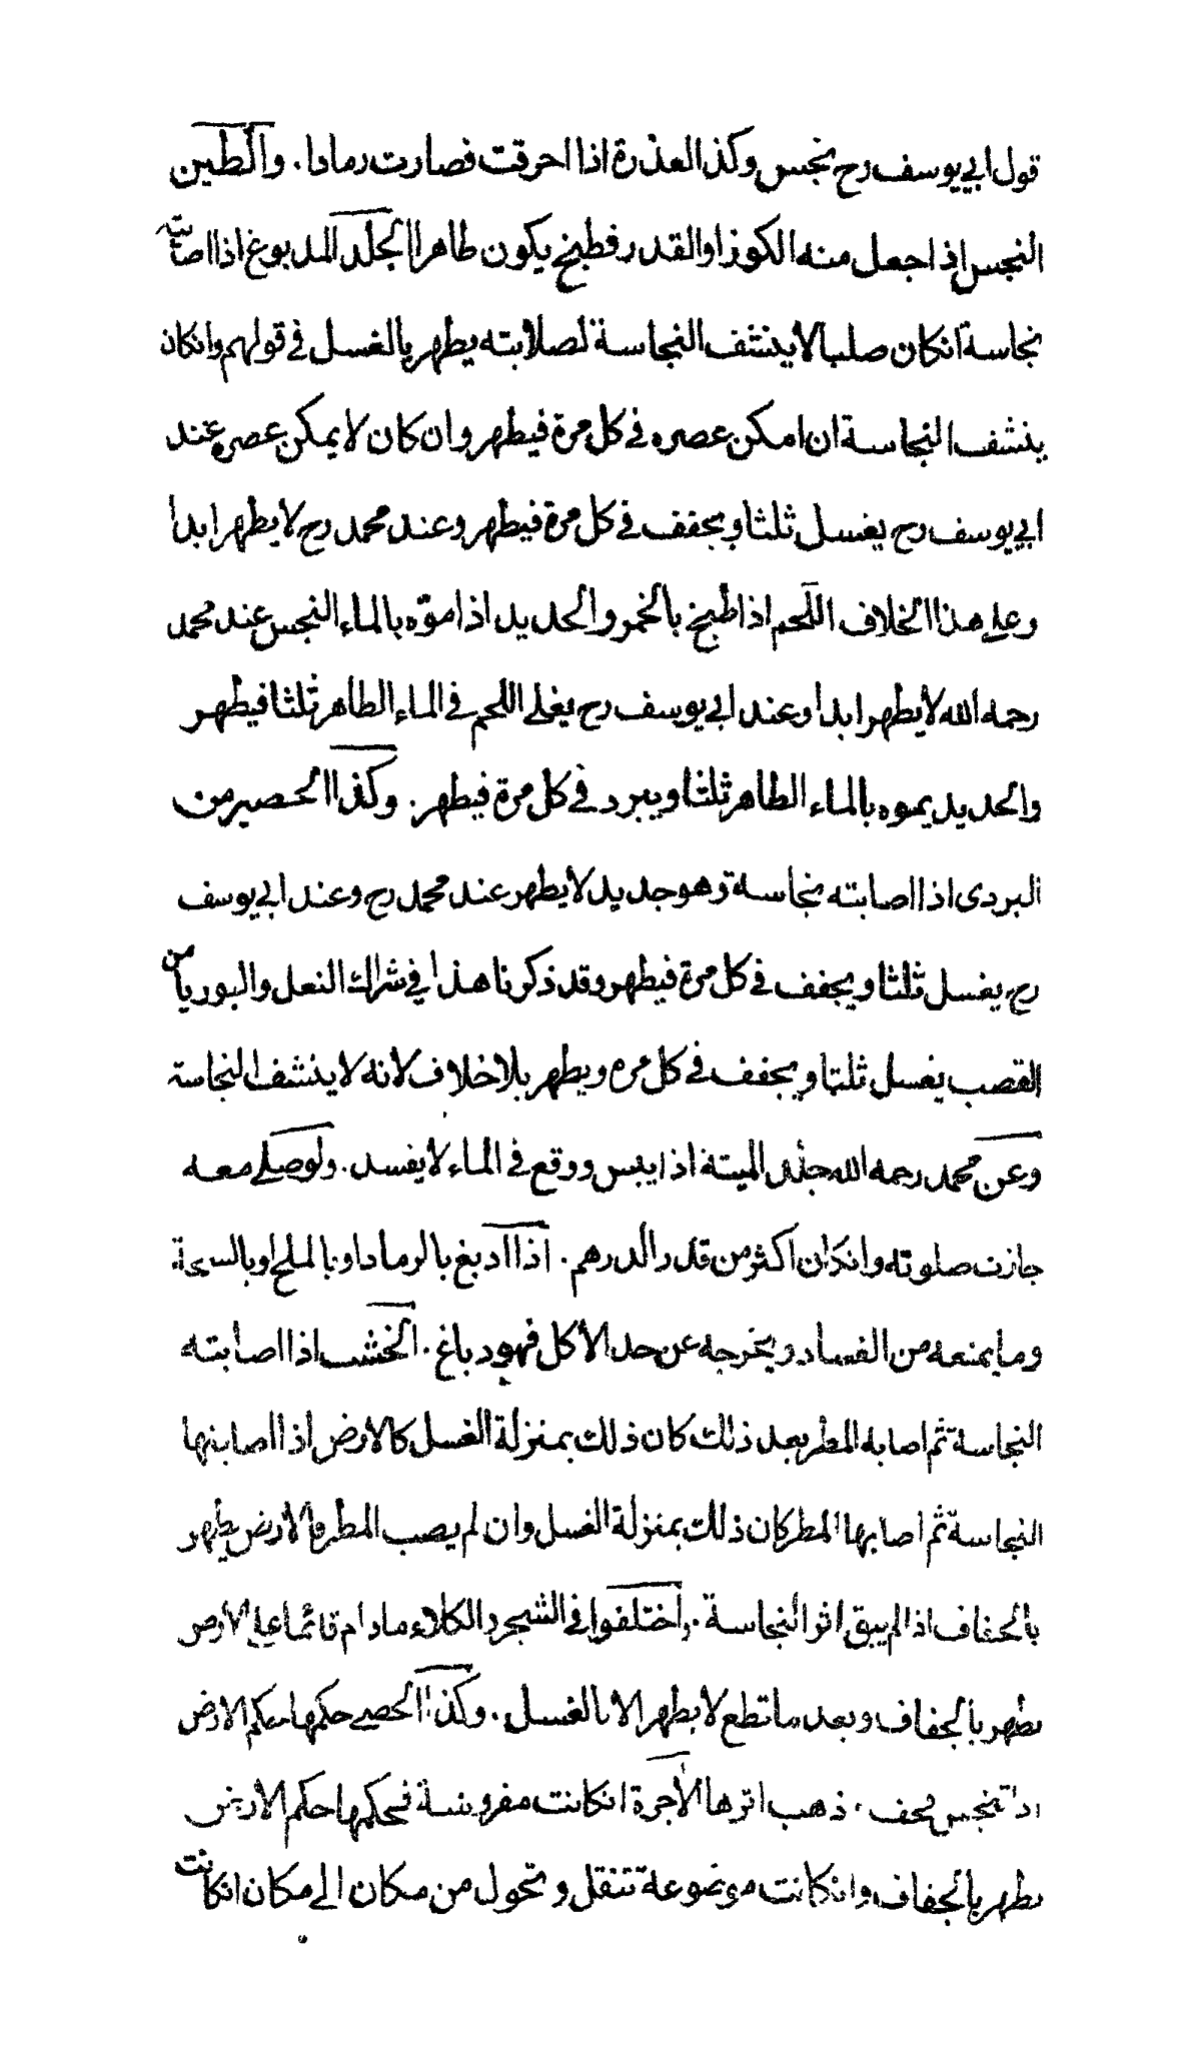 قول ابي يوسف رح نجس وكذا العذرة اذا احرقت فصارت رمادا. والطين
النجس اذا جعل منه الكوز او القدر فطبخ يكون طاهرا الجلد المدبوغ اذا اصابته
نجاسة انكان صلبا لا ينشف النجاسة لصلابته يطهر بالغسل في قولهم وانكان
ينشف النجاسة ان امكن عصره في كل مرة فيطهر وان كان لا يمكن عصره عند
ابي يوسف رح يغسل ثلثا ويجفف في كل مرة فيطهر وعند محمد رح لا يطهر ابدا
وعلى هذا الخلاف اللحم اذا طبخ بالخمر والحديد اذا موّه بالماء النجس عند محمد
رحمه الله لا يطهر ابدا وعند ابي يوسف رح يغلى اللحم في الماء الطاهر ثلثا فيطهر
والحديد يموه بالماء الطاهر ثلثا ويبرد في كل مرة فيطهر. وكذا الحصير من
البردى اذا اصابته نجاسة وهو جديد لا يطهر عند محمد رح وعند ابي يوسف
رح يغسل ثلثا ويجفف في كل مرة فيطهر وقد ذكرنا هذا في شراك النعل والبوريا من
القصب يغسل ثلثا ويجفف في كل مره ويطهر بلا خلاف لانه لا ينشف النجاسة
وعن محمد رحمه الله جلد الميتة اذا يبس ووقع في الماء لا يفسد. ولو صلى معه
جازت صلوته وانكان اكثر من قدر الدرهم. اذا ادبغ بالرماد او بالملح او بالسبخة
وما يمنعه من الفساد ويخرجه عن حد الأكل فهو دباغ. الخشب اذا اصابته
النجاسة ثم اصابه المطر بعد ذلك كان ذلك بمنزلة الغسل كالارض اذا اصابتها
النجاسة ثم اصابها المطر كان ذلك بمنزلة الغسل وان لم يصب المطر فالارض يطهر
بالجفاف اذا لم يبق اثر النجاسة. واختلفوا في الشجر والكلاء ما دام قائما على الارض
يطهر بالجفاف وبعد ما قطع لا يطهر الا بالغسل. وكذا الحصى حكمها حكم الارض
اذا تنجس فجف. ذهب اثرها الآجرة انكانت مفروشة فحكمها حكم الارض
يطهر بالجفاف وانكانت موضوعة تنقل وتحول من مكان الى مكان انكانت